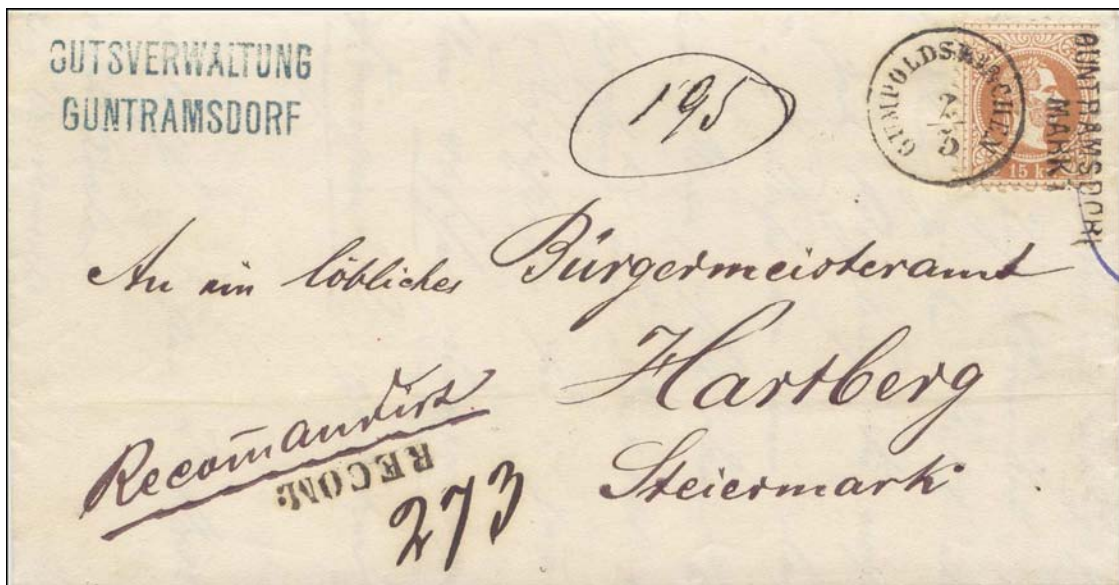 GUTSVERWALTUNG
GUNTRAMSDORF
195
GUMPOLDSKIRCHEN
2/5
15 k
GUNTRAMSDORF
MARKT
An ein löbliches Bürgermeisteramt
Hartberg
Steiermark
Recom̄andirt
RECOM:
273